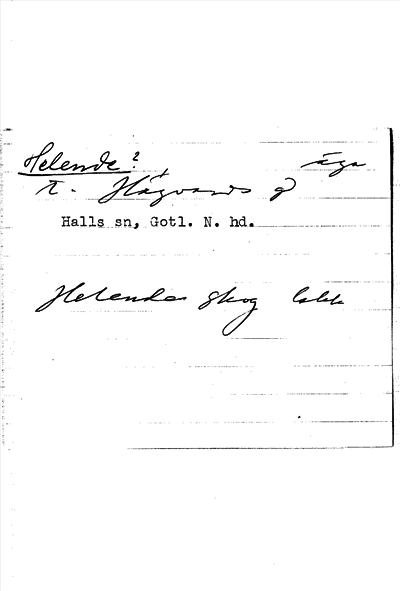 Helende? äga
t. Hägvards g
Halls sn, Gotl. N. hd.
Helendes skog